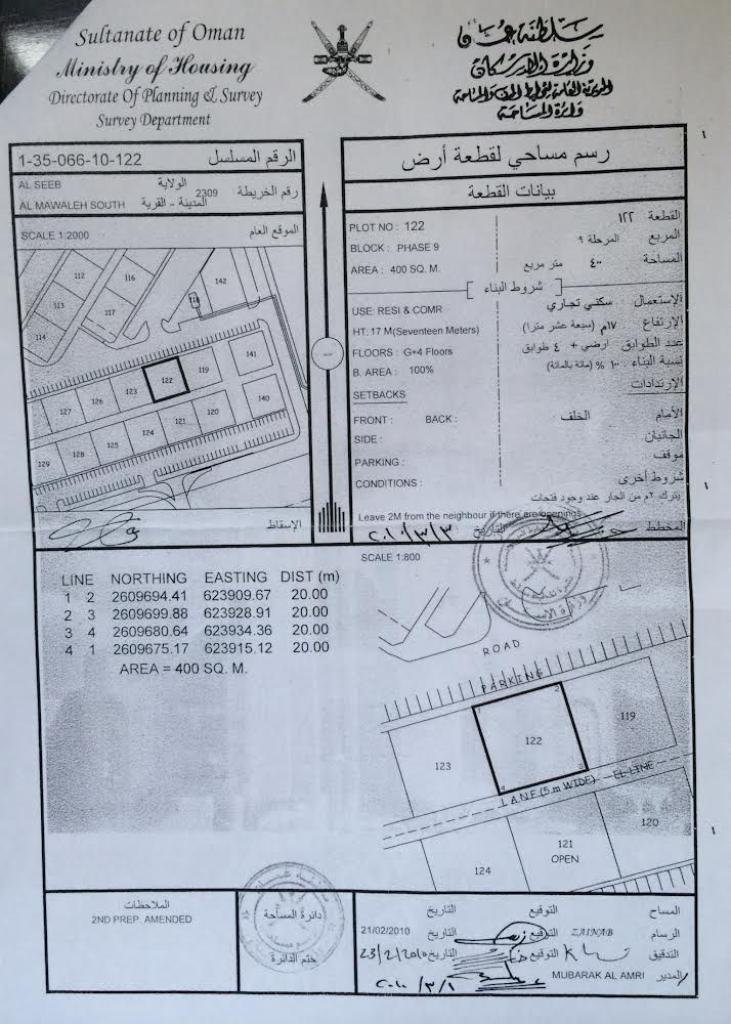 Sultanate of Oman
Ministry of Housing
Directorate Of Planning & Survey
Survey Department
سلطنة عمان
وزارة الإسكان
المديرية العامة للتخطيط والمساحة
دائرة المساحة
1-35-066-10-122 الرقم المسلسل
AL SEEB الولاية
رقم الخريطة 2309
AL MAWALEH SOUTH المدينة - القرية
SCALE 1:2000 الموقع العام
112
116
142
113
117
114
127
126
123
122
119
141
129
128
125
124
121
120
140
الإسقاط
رسم مساحي لقطعة أرض
بيانات القطعة
PLOT NO : 122 القطعة ١٢٢
BLOCK : PHASE 9 المربع المرحلة ٩
AREA : 400 SQ. M. المساحة ٤٠٠ متر مربع
شروط البناء
USE: RESI & COMR الإستعمال سكني تجاري
HT: 17 M(Seventeen Meters) الإرتفاع ١٧م (سبعة عشر مترا)
FLOORS : G+4 Floors عدد الطوابق ارضي + ٤ طوابق
B. AREA : 100% نسبة البناء ١٠٠ % (مائة بالمائة)
SETBACKS الإرتدادات
FRONT : BACK : الأمام الخلف
SIDE : الجانبان
PARKING : موقف
CONDITIONS : شروط أخرى
يترك ٢م من الجار عند وجود فتحات
Leave 2M from the neighbour if there are openings
المخطط التاريخ ٢٠١٠/٣/٣
SCALE 1:800
LINE NORTHING EASTING DIST (m)
1 2 2609694.41 623909.67 20.00
2 3 2609699.88 623928.91 20.00
3 4 2609680.64 623934.36 20.00
4 1 2609675.17 623915.12 20.00
AREA = 400 SQ. M.
ROAD
PARKING
2
119
122
123
3
4
LANE (5 m WIDE) EL-LINE
120
121
OPEN
124
الملاحظات
2ND PREP. AMENDED
دائرة المساحة
ختم الدائرة
المساح التوقيع التاريخ
الرسام ZAINAB التوقيع التاريخ 21/02/2010
التدقيق التوقيع التاريخ 23/2/2010
المدير MUBARAK AL AMRI ٢٠١٠/٣/١